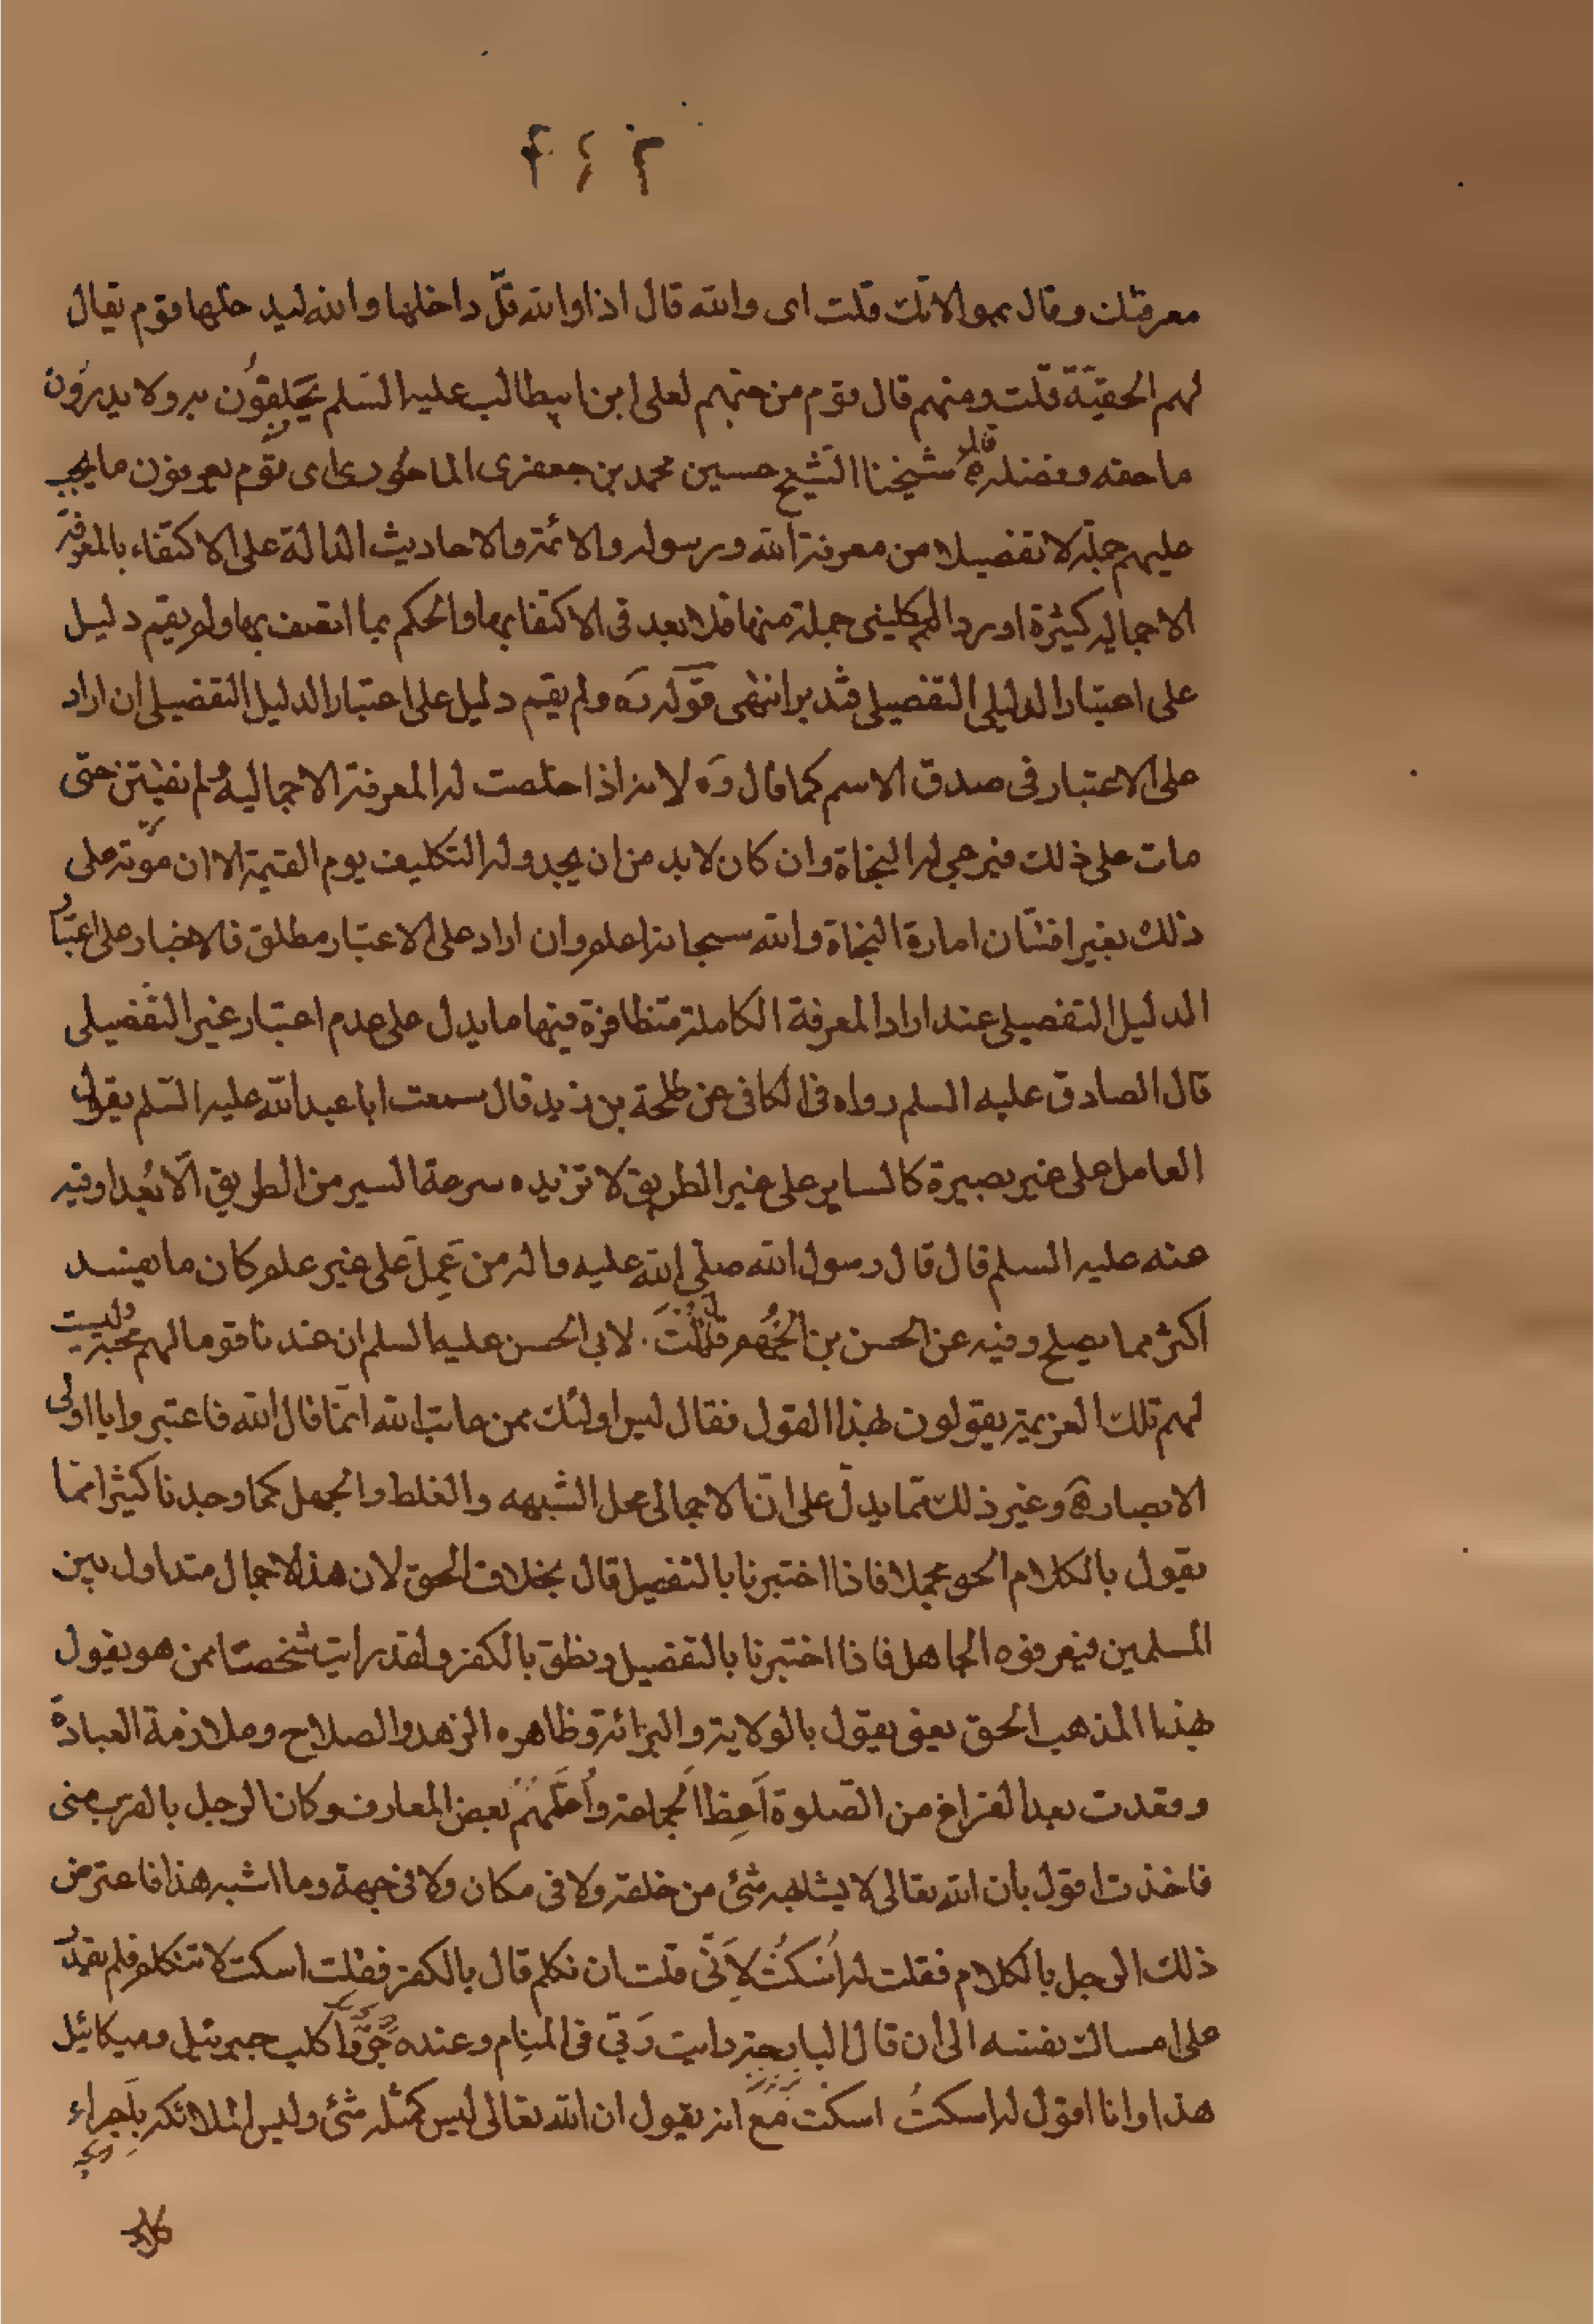 معرفتك وقال بموالاتك قلت اى والله قال اذا والله قلّ داخلها والله ليدخلها قوم يقال
لهم الحقيّة قلت ومنهم قال قوم من حبّهم لعلى ابن ابيطالب عليه السّلم يَحْلِفُون به ولا يدرُون
ما حقه وفضله قال شيخنا الشيخ حسين محمد بن جعفرى الماحوزى اى قوم يعرفون ما يجب
عليهم جملة لا تفضيلا من معرفة الله ورسوله والائمة والاحاديث الدالة على الاكتفاء بالمعرفة
الاجماليه كثيرة اورد الكلينى جملة منها فلا بعد فى الاكتفا بها والحكم بما اتصف بها ولم يقم دليل
على اعتبار الدليل التفصيلى فتدبر انتهى قوله ره ولم يقم دليل على اعتبار الدليل التفضيلى ان اراد
على الاعتبار فى صدق الاسم كما قال ره لانه اذا خلصت له المعرفة الاجمالية ولم يفتتن حتى
مات على ذلك فيرجى له النجاة وان كان لا بد من ان يجدد له التكليف يوم القيمة الا ان موته على
ذلك بغير افتتان امارة النجاة والله سبحانه اعلم وان اراد على الاعتبار مطلق فالاخبار على اعتبار
الدليل التفصيلى عند اراد المعرفة الكاملة متظافرة فيها ما يدل على عدم اعتبار غير التّفصيلى
قال الصادق عليه السلم رواه فى الكافى عن طلحة بن زيد قال سمعت ابا عبد الله عليه السّلم يقول
العامل على غير بصيرة كالساير على غير الطريق لا تزيده سرعة السير من الطريق الّا بُعدا وفيه
عنه عليه السلم قال قال رسول الله صلى الله عليه واله من عَمِلَ على غير علم كان ما يفسد
اكثر مما يصلح وفيه عن الحسن بن الجَهم قُلْتُ لابى الحسن عليه السلم ان عندنا قوما لهم محبة وليست
لهم تلك العزيمة يقولون بهذا القول فقال ليس اولئك ممن عاتب الله انّما قال الله فاعتبروا يا اولى
الابصار ه وغير ذلك ممّا يدلّ على انّ الاجمالى محل الشبهه والغلط والجهل كما وجدنا كثيرا ممّا
يقول بالكلام الحق مجملا فاذا اختبرنا بالتفصيل قال بخلاف الحق لان هذا الاجمال متداول بين
المسلمين فيعرفوه الجاهل فاذا اختبرنا بالتفصيل ونطق بالكفر ولقد رايت شخصًا ممن هو يقول
بهذا المذهب الحق يعنى يقول بالولاية والبرائة وظاهره الزهد والصلاح وملازمة العبادة
وقعدت بعد الفراغ من الصّلوة اَعِظ الجماعة واُعلّمهم بعض المعارف وكان الرجل بالقرب منى
فاخذت اقول بان الله تعالى لا يشابهه شئ من خلقه ولا فى مكان ولا فى جهة وما اشبه هذا فاعترض
ذلك الرجل بالكلام فقلت له اُسْكُتْ لِاَنّى قلت ان تكلم قال بالكفر فقلت اسكت لا تتكلم فلم يقدر
على امساك نفسه الى ان قال البارحة رايت رَبّى فى المنام وعنده جَرّوا كلب جبرئيل وميكائيل
هذا وانا اقول له اسكتُ اسكتْ مَع انه يقول ان الله تعالى ليس كمثله شئ وليس الملائكة بِاَجراء